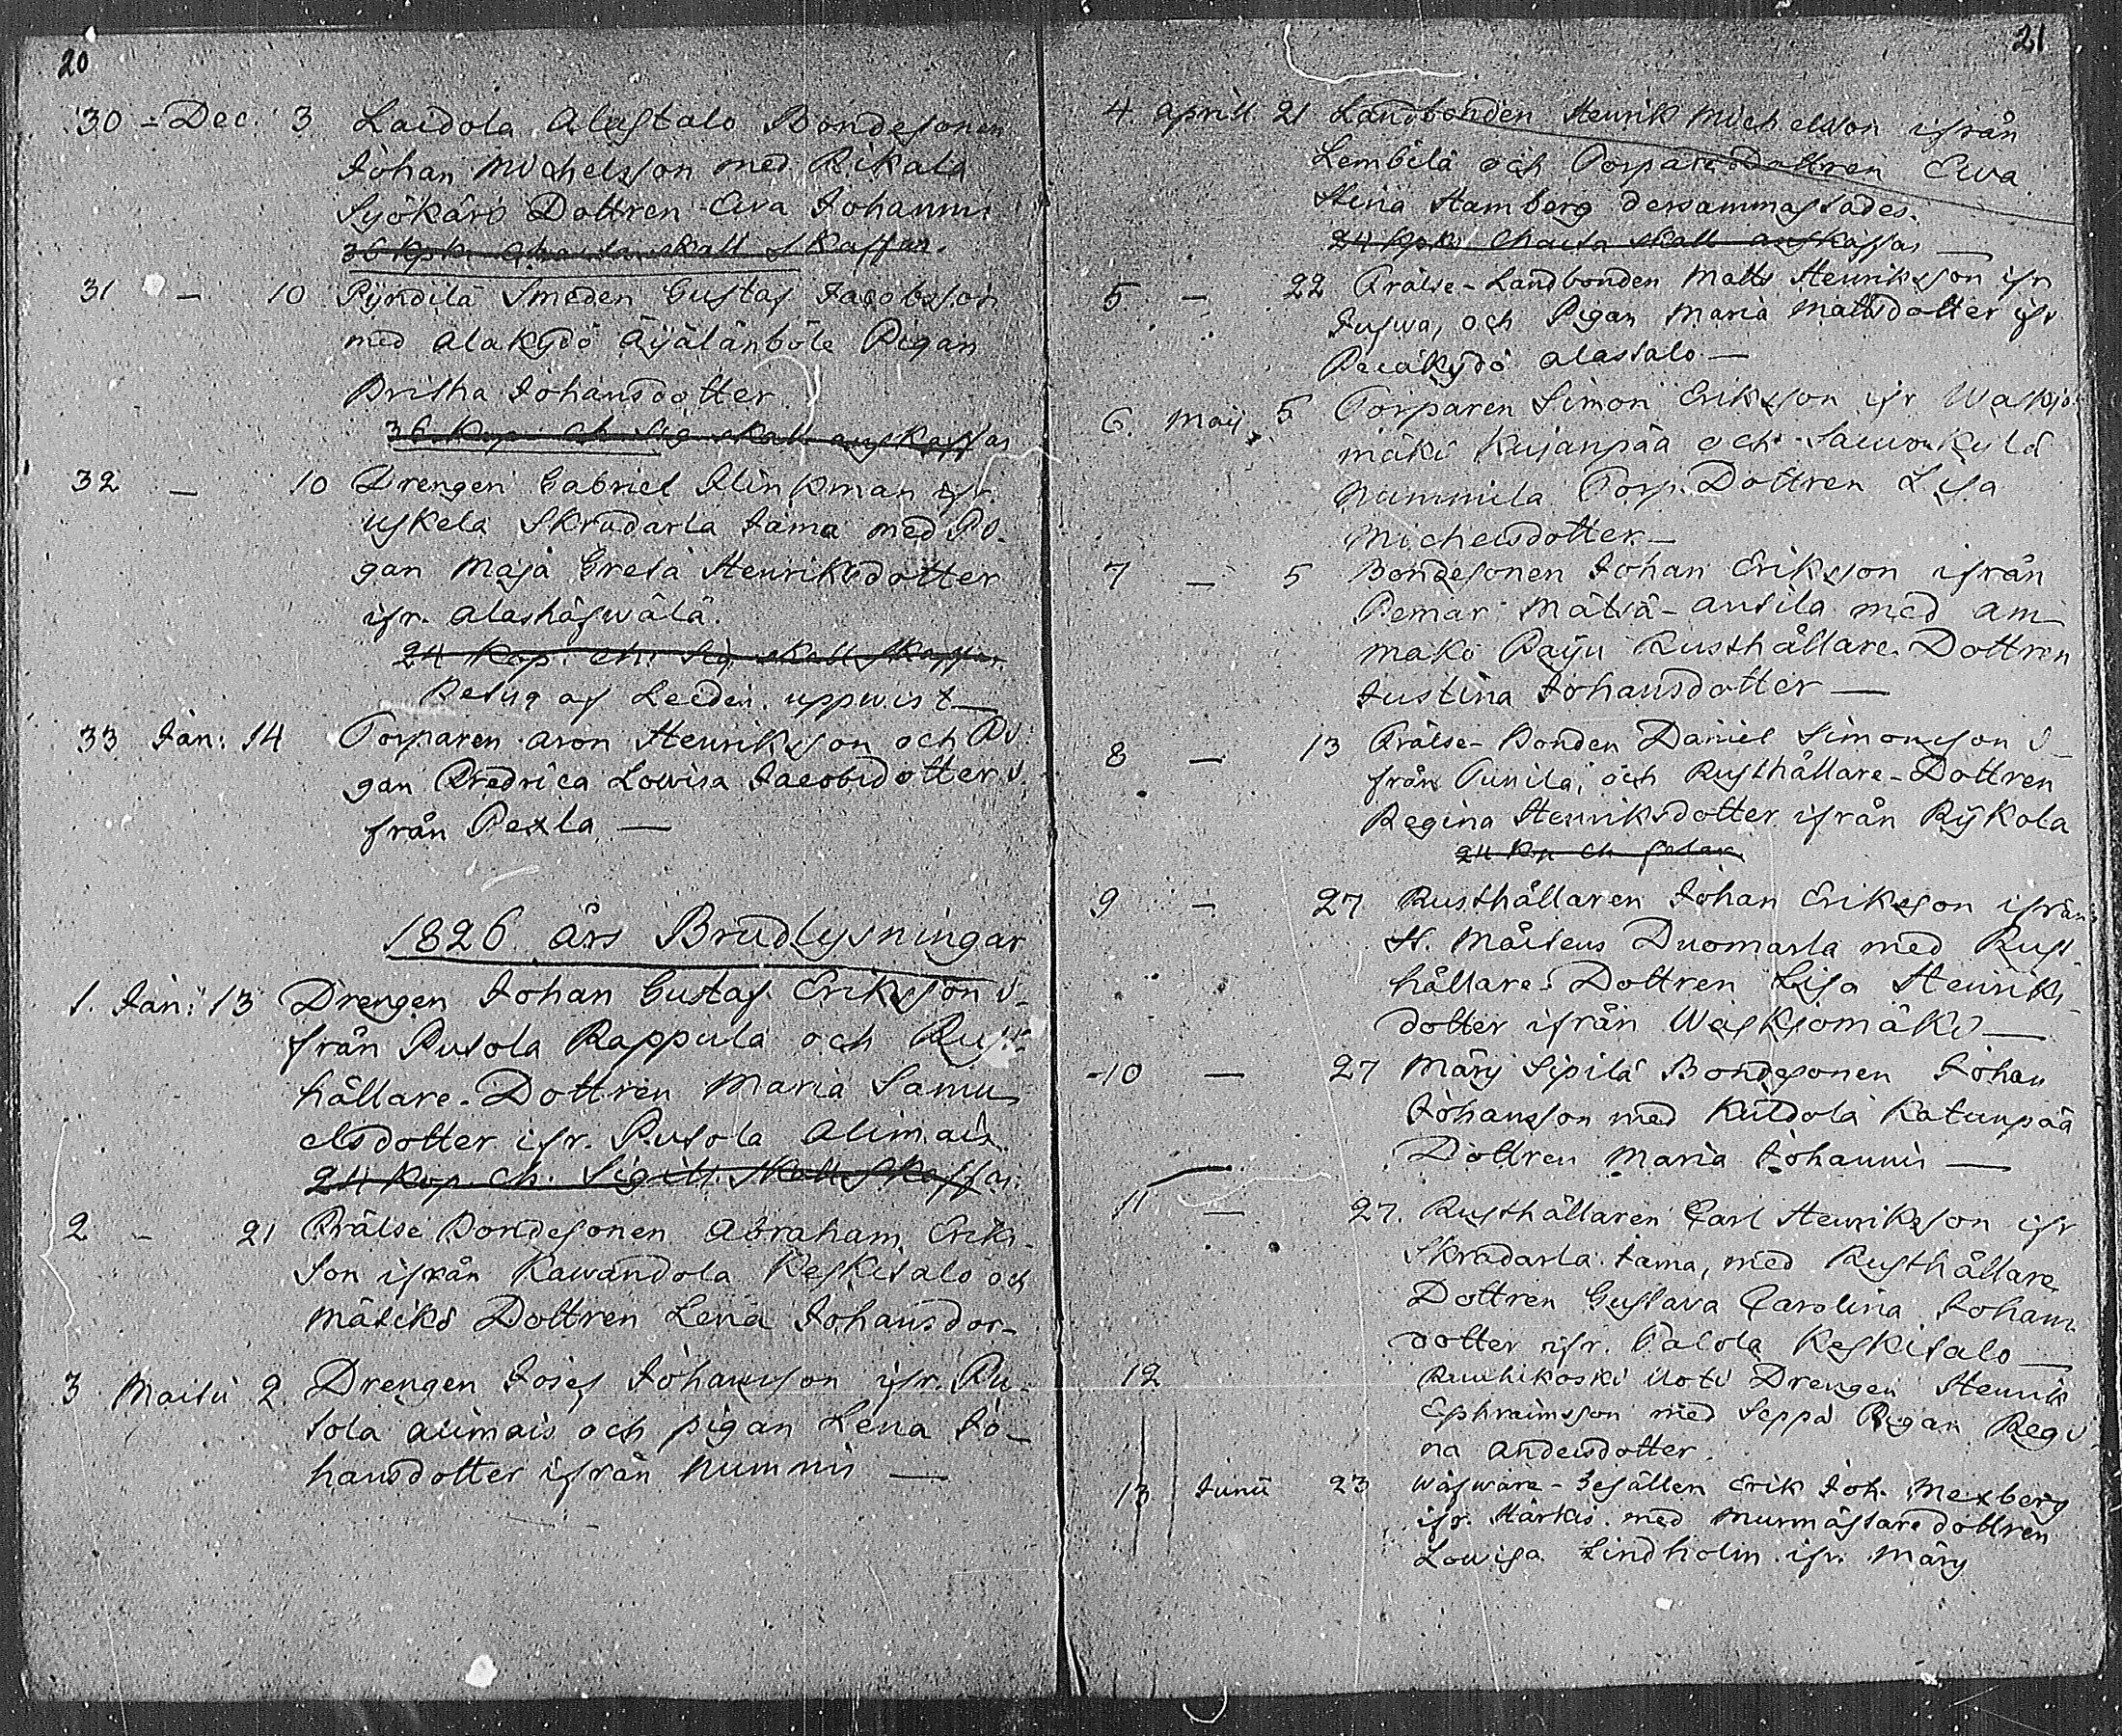 20
30 - Dec. 3 Laidola Alastalo Bondesonen
Johan Michelsson med Rikala
Syökäri Dottren Eva Johanns
36 kpk. Charta skall skaffas.
31 - 10 Pyndilä Smeden Gustaf Jacobsson
med Alakydö Äijälänböle Pigan
Britha Johansdotter
36 Kop. Ch. Sig. skall anskaffas
32 - 10 Drengen Gabriel Flinkman ifr.
Uskela Skrudarla Tama med Pi-
gan Maja Greta Henriksdotter
ifr. Alashäfwälä.
24 Kop. ch. Sig. skall skaffas
Betyg af Leeden uppwist —
33 Jan: 14 Torparen Aron Henriksson och Pi-
gan Fredrica Lowisa Jacobsdotter i-
från Pexla —
1826 års Brudlysningar
1. Jan: 13 Drengen Johan Gustaf Eriksson i-
från Pusola Rappula och Rust-
hållare-Dottren Maria Samu-
elsdotter ifr. Pusola Alimais
24 Kop. Ch. Sigill. skall skaffas.
2 - 21 Frälse Bondesonen Abraham Eriks-
son ifrån Kawandola Keskitalo och
Mätikö Dottren Lena Johansdor-
3 Martii 2. Drengen Josef Johansson ifr. Pu-
sola alimais och pigan Lena Jo-
hansdotter ifrån Nummis —
21
4. April 21 Landbonden Henrik Michelsson ifrån
Lembilä och Torpare Dottren Ewa
Stina Hamberg dersammastades.
24 Kpk. Charta skall anskaffas —
5 - 22 Frälse-Landbonden Matts Henriksson ifr
Juswa, och Pigan Maria Mattsdotter ifr
Peräkydö Alastalo —
6. Maij 5 Torparen Simon Eriksson ifr Waskjo-
mäki Kujanpää och Sauwonkylä
Nummila Torp. Dottren Lisa
Michelsdotter —
7 - 5 Bondesonen Johan Eriksson ifrån
Pemar Mälsä-Antila med Am-
mako Paiju Rusthållare Dottren
Justina Johansdotter —
8 - 13 Frälse-Bonden Daniel Simonsson i-
från Tunila, och Rusthållare-Dottren
Regina Henriksdotter ifrån Rykola
24 Kp Ch
9 - 27 Rusthållaren Johan Eriksson ifrån
St. Mårtens Duomarla med Rust-
hållare-Dottren Lisa Henriks-
dotter ifrån Waskjomäki —
10 - 27 Märy Sipilä Bondesonen Johan
Johansson med Kuldola Katunpää
Dottren Maria Johannis —
11 - 27. Rusthållaren Carl Henriksson ifr
Skrudarla Tama, med Rusthållare
Dottren Gustava Carolina Johans-
dotter ifr. Talola Keskitalo —
12 Ruuhikoski Uoti Drengen Henrik
Ephraimsson med Seppä Pigan Regi-
na Andersdotter.
13 Junii 23 Wäfware-Gesällen Erik Joh. Mexberg
ifr. Härkis med Murmästare dottren
Lowisa Lindholm ifr. Märy